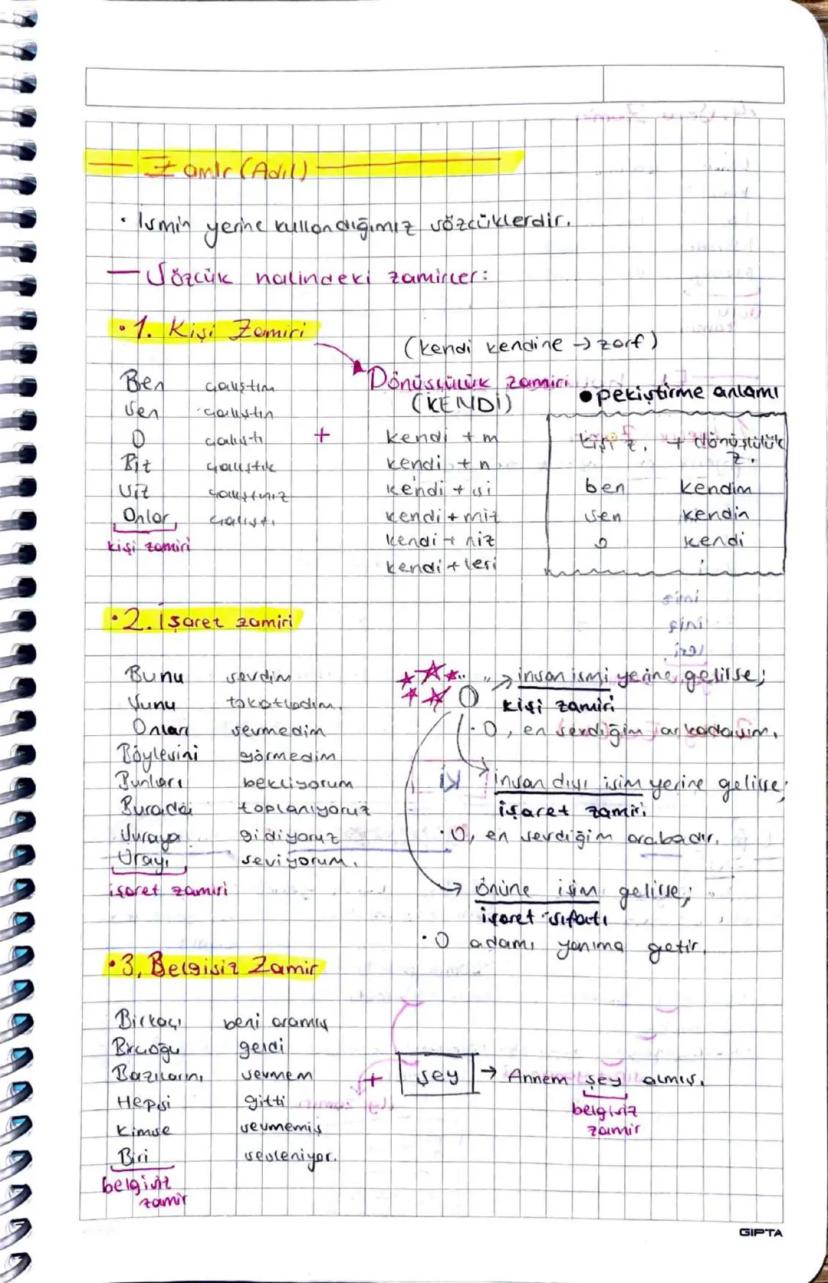 Zamir (Adıl)
• İsmin yerine kullandığımız sözcüklerdir.
— Sözcük halindeki zamirler:
• 1. Kişi Zamiri
(kendi kendine → zarf)
Dönüşlülük zamiri
(KENDİ)
• pekiştirme anlamı
Ben çalıştım
Sen çalıştın
O çalıştı
Biz çalıştık
Siz çalıştınız
Onlar çalıştı
kişi zamiri
+
kendi + m
kendi + n
kendi + si
kendi + miz
kendi + niz
kendi + leri
kişi z. + dönüşlülük z.
ben kendim
sen kendin
o kendi
• 2. İşaret zamiri
Bunu sevdim
Şunu tokatladım.
Onları sevmedim
Böylesini görmedim
Bunları bekliyorum
Burada toplanıyoruz
Şuraya gidiyoruz
Orayı seviyorum.
işaret zamiri
O → insan ismi yerine gelirse;
kişi zamiri
• O, en sevdiğim arkadaşım.
→ insan dışı isim yerine gelirse;
işaret zamiri
• O, en sevdiğim arabadır.
→ önüne isim gelirse;
işaret sıfatı
• O adamı yanıma getir.
• 3. Belgisiz Zamir
Birkaçı beni aramış
Birçoğu geldi
Bazılarını sevmem
Hepsi gitti
Kimse sevmemiş
Biri sesleniyor.
belgisiz
zamir
+ şey → Annem şey almış.
belgisiz
zamir
GIPTA